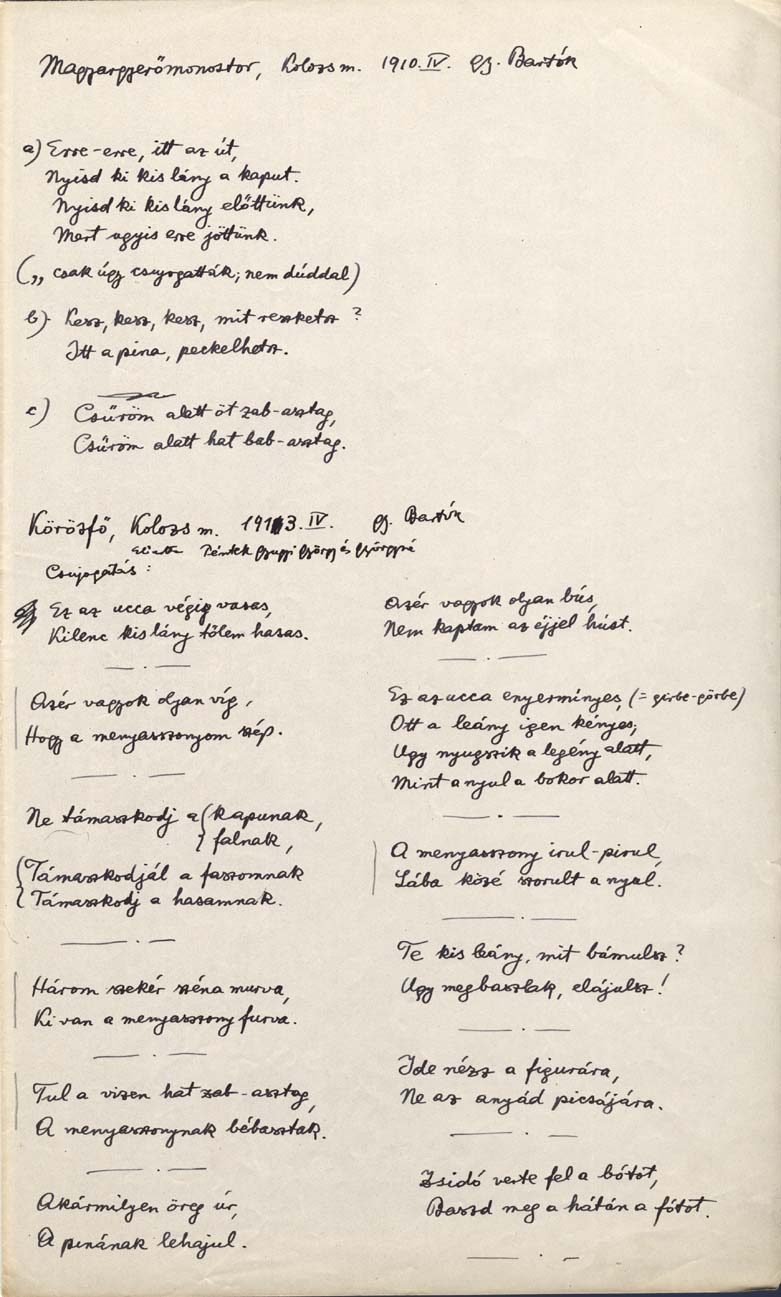 Magyargyerőmonostor, Kolozs m. 1910.IV. gy. Bartók
a) Erre-erre, itt az út,
Nyisd ki kis lány a kaput.
Nyisd ki kis lány előttünk,
Mert ugyis erre jöttünk.
(„ csak úgy csujogatták; nem dúddal)
b) Kesz, kesz, kesz, mit reszketsz ?
Itt a pina, peckelhetsz.
c) Csűröm alatt öt zab-asztag,
Csűröm alatt hat bab-asztag.
Körösfő, Kolozs m. 1913.IV. gy. Bartók
Péntek gyugyi György és Györgyné
Csujogatás :
Ez az ucca végig vasas,
Kilenc kis lány tőlem hasas.
Azér vagyok olyan víg,
Hogy a menyasszonyom szép.
Ne támaszkodj a { kapunak,
} falnak,
{ Támaszkodjál a faszomnak
{ Támaszkodj a hasamnak.
Három szekér széna murva,
Ki van a menyasszony furva.
Tul a vizen hat zab-asztag,
A menyasszonynak bébasztak.
Akármilyen öreg úr,
A pinának lehajul.
Azér vagyok olyan bús,
Nem kaptam az éjjel húst.
Ez az ucca enyerményes, (= girbe-görbe)
Ott a leány igen kényes;
Ugy nyugszik a legény alatt,
Mint a nyul a bokor alatt.
A menyasszony irul-pirul,
Lába közé szorult a nyul.
Te kis leány, mit bámulsz ?
Ugy megbaszlak, elájulsz !
Ide nézz a figurára,
Ne az anyád picsájára.
Zsidó verte fel a bótot,
Baszd meg a hátán a fótot.